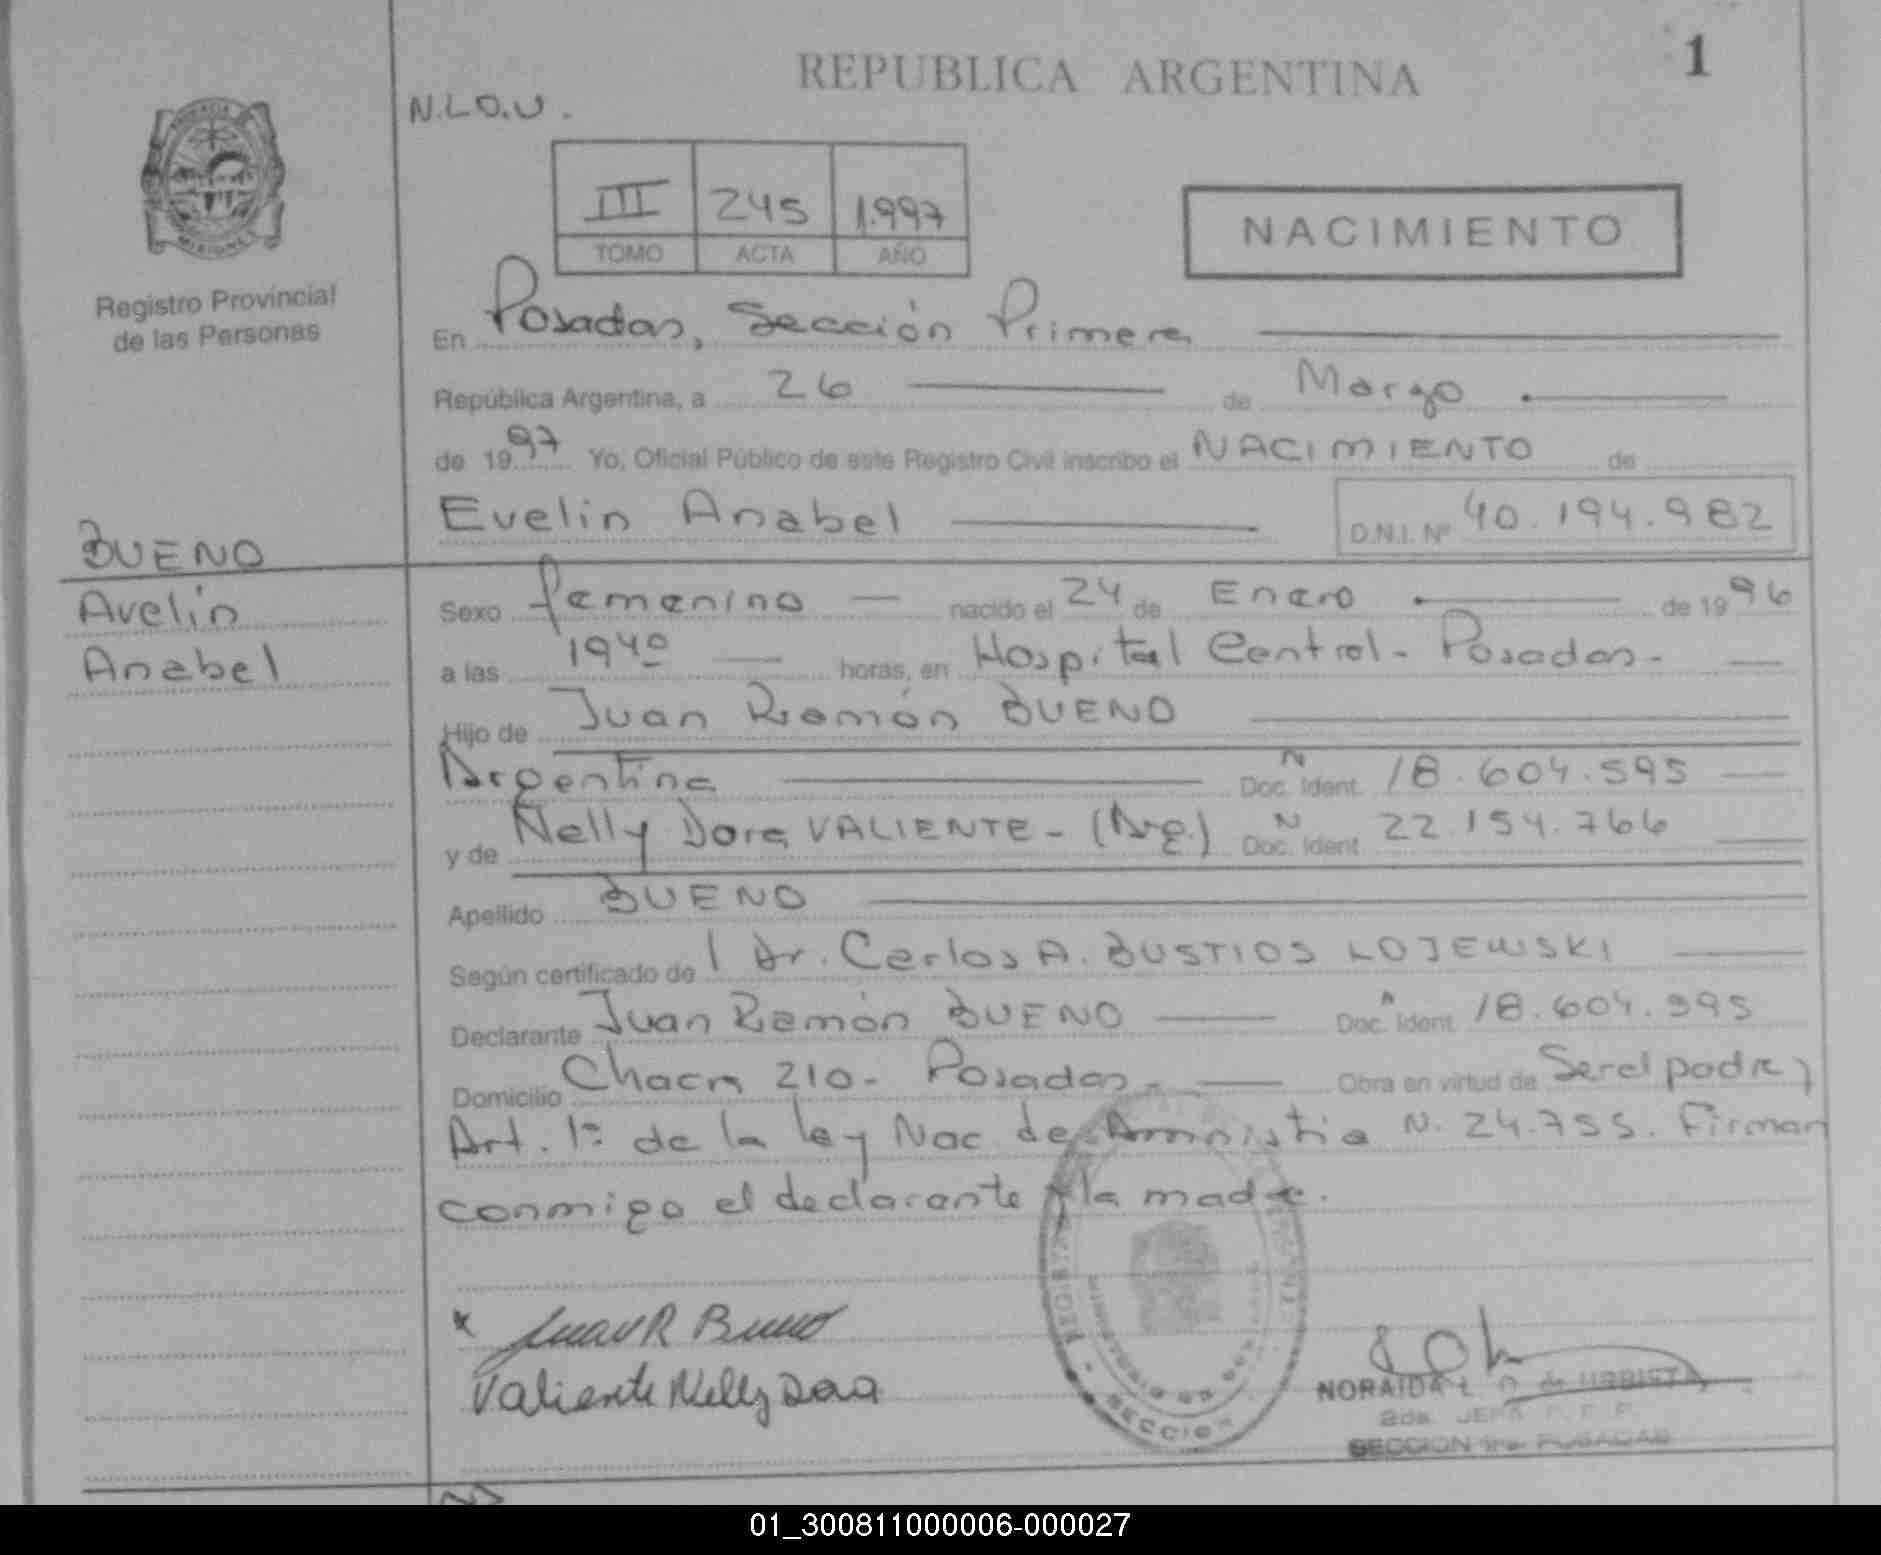 REPUBLICA ARGENTINA
1
N.L.O.U.
III 245 1.997
TOMO ACTA AÑO
NACIMIENTO
Registro Provincial
de las Personas
En Posadas, Sección Primera
República Argentina, a 26 de Marzo
de 1997 Yo, Oficial Público de este Registro Civil inscribo el NACIMIENTO de
Evelin Anabel D.N.I. Nº 40.194.982
BUENO
Avelin
Anabel
Sexo femenino nacido el 24 de Enero de 1996
a las 1940 horas, en Hospital Central - Posadas -
Hijo de Juan Ramón BUENO
Argentina Doc. Ident. N 18.604.595
y de Nelly Dora VALIENTE - (Arg.) Doc. Ident. N 22.154.766
Apellido BUENO
Según certificado de l Dr. Carlos A. BUSTIOS LOJEWSKI
Declarante Juan Ramón BUENO Doc. Ident. N 18.604.595
Domicilio Chacra 210 - Posadas - Obra en virtud de Ser el padre y
Art. 1º de la ley Nac de Amnistia N. 24.755. Firman
conmigo el declarante y la madre.
x Juan R Bueno
Valiente Nelly Dora
NORAIDA L. de URBIETA
2da. JEFA
SECCION 1ra. POSADAS
SECCION
01_300811000006-000027